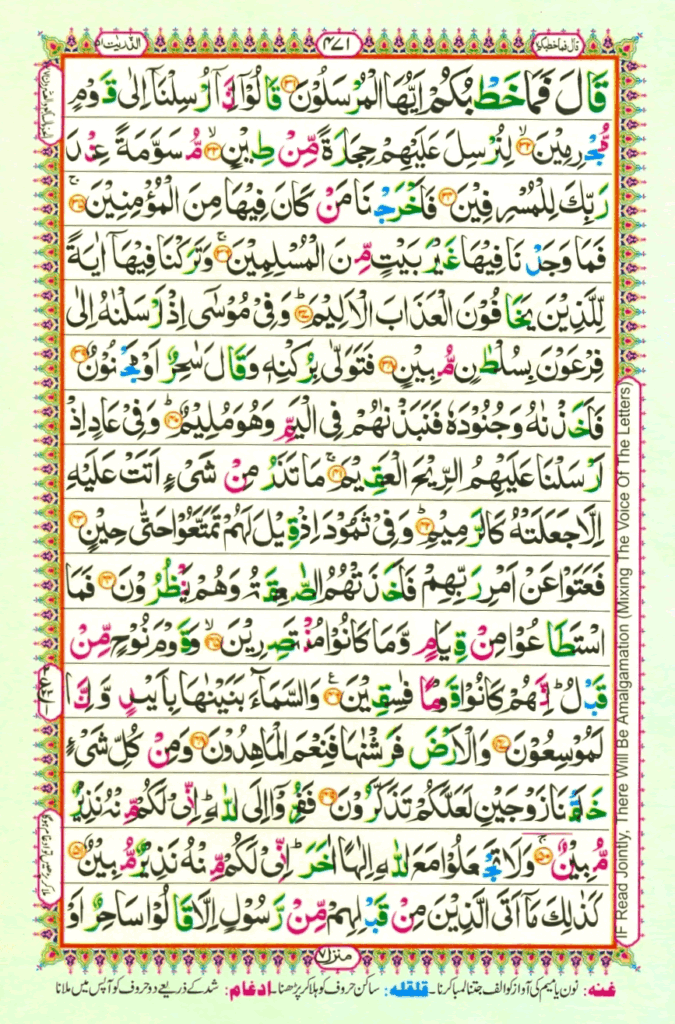 الذّٰریٰت ۵۱
۴۷۱
قال فما خطبکم ۲۷
قَالَ فَمَا خَطْبُكُمْ اَيُّهَا الْمُرْسَلُوْنَ ﴿۳۱﴾ قَالُوْۤا اِنَّاۤ اُرْسِلْنَاۤ اِلٰى قَوْمٍ
مُّجْرِمِيْنَ ﴿۳۲﴾ لِنُرْسِلَ عَلَيْهِمْ حِجَارَةً مِّنْ طِيْنٍ ﴿۳۳﴾ مُّسَوَّمَةً عِنْدَ
رَبِّكَ لِلْمُسْرِفِيْنَ ﴿۳۴﴾ فَاَخْرَجْنَا مَنْ كَانَ فِيْهَا مِنَ الْمُؤْمِنِيْنَ ﴿۳۵﴾ۚ
فَمَا وَجَدْنَا فِيْهَا غَيْرَ بَيْتٍ مِّنَ الْمُسْلِمِيْنَ ﴿۳۶﴾ۚ وَتَرَكْنَا فِيْهَاۤ اٰيَةً
لِّلَّذِيْنَ يَخَافُوْنَ الْعَذَابَ الْاَلِيْمَ ﴿۳۷﴾ؕ وَفِيْ مُوْسٰۤى اِذْ اَرْسَلْنٰهُ اِلٰى
فِرْعَوْنَ بِسُلْطٰنٍ مُّبِيْنٍ ﴿۳۸﴾ فَتَوَلّٰى بِرُكْنِهٖ وَقَالَ سٰحِرٌ اَوْ مَجْنُوْنٌ ﴿۳۹﴾
فَاَخَذْنٰهُ وَجُنُوْدَهٗ فَنَبَذْنٰهُمْ فِي الْيَمِّ وَهُوَ مُلِيْمٌ ﴿۴۰﴾ؕ وَفِيْ عَادٍ اِذْ
اَرْسَلْنَا عَلَيْهِمُ الرِّيْحَ الْعَقِيْمَ ﴿۴۱﴾ۚ مَا تَذَرُ مِنْ شَيْءٍ اَتَتْ عَلَيْهِ
اِلَّا جَعَلَتْهُ كَالرَّمِيْمِ ﴿۴۲﴾ؕ وَفِيْ ثَمُوْدَ اِذْ قِيْلَ لَهُمْ تَمَتَّعُوْا حَتّٰى حِيْنٍ ﴿۴۳﴾
فَعَتَوْا عَنْ اَمْرِ رَبِّهِمْ فَاَخَذَتْهُمُ الصّٰعِقَةُ وَهُمْ يَنْظُرُوْنَ ﴿۴۴﴾ فَمَا
اسْتَطَاعُوْا مِنْ قِيَامٍ وَّمَا كَانُوْا مُنْتَصِرِيْنَ ﴿۴۵﴾ۙ وَقَوْمَ نُوْحٍ مِّنْ
قَبْلُ ؕ اِنَّهُمْ كَانُوْا قَوْمًا فٰسِقِيْنَ ﴿۴۶﴾ۧ وَالسَّمَآءَ بَنَيْنٰهَا بِاَيْىدٍ وَّاِنَّا
لَمُوْسِعُوْنَ ﴿۴۷﴾ وَالْاَرْضَ فَرَشْنٰهَا فَنِعْمَ الْمٰهِدُوْنَ ﴿۴۸﴾ وَمِنْ كُلِّ شَيْءٍ
خَلَقْنَا زَوْجَيْنِ لَعَلَّكُمْ تَذَكَّرُوْنَ ﴿۴۹﴾ فَفِرُّوْۤا اِلَى اللّٰهِ ؕ اِنِّيْ لَكُمْ مِّنْهُ نَذِيْرٌ
مُّبِيْنٌ ﴿۵۰﴾ۚ وَلَا تَجْعَلُوْا مَعَ اللّٰهِ اِلٰهًا اٰخَرَ ؕ اِنِّيْ لَكُمْ مِّنْهُ نَذِيْرٌ مُّبِيْنٌ ﴿۵۱﴾ۚ
كَذٰلِكَ مَاۤ اَتَى الَّذِيْنَ مِنْ قَبْلِهِمْ مِّنْ رَّسُوْلٍ اِلَّا قَالُوْا سَاحِرٌ اَوْ
منزل ۷
IF Read Jointly, There Will Be Amalgamation (Mixing The Voice Of The Letters)
غنہ: نون یا میم کی آواز کو الف جتنا لمبا کرنا۔ قلقلہ: ساکن حروف کو ہلا کر پڑھنا۔ ادغام: شد کے ذریعے دو حروف کو آپس میں ملانا